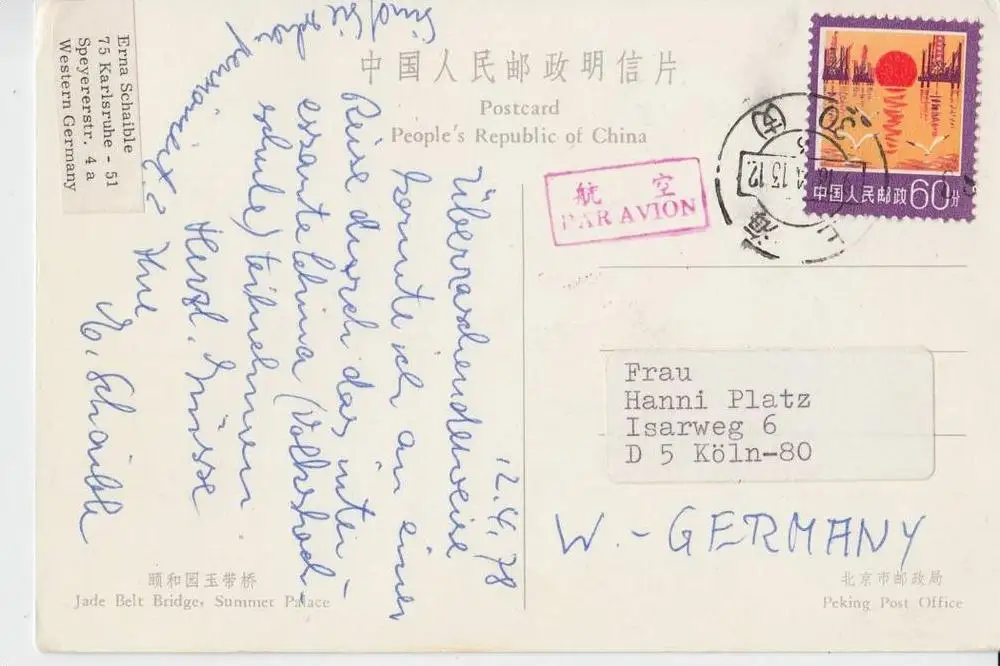 Erna Schaible
75 Karlsruhe - 51
Speyererstr. 4 a
Western Germany
中国人民邮政明信片
Postcard
People's Republic of China
航 空
PAR AVION
中国人民邮政 60分
上海
12.4.78
Überraschenderweise
konnte ich an einer
Reise durch das inter-
essante China (Volkshoch-
schule) teilnehmen
Herzl. Grüsse
Ihre
E. Schaible
Frau
Hanni Platz
Isarweg 6
D 5 Köln-80
W.-GERMANY
颐和园玉带桥
Jade Belt Bridge, Summer Palace
北京市邮政局
Peking Post Office